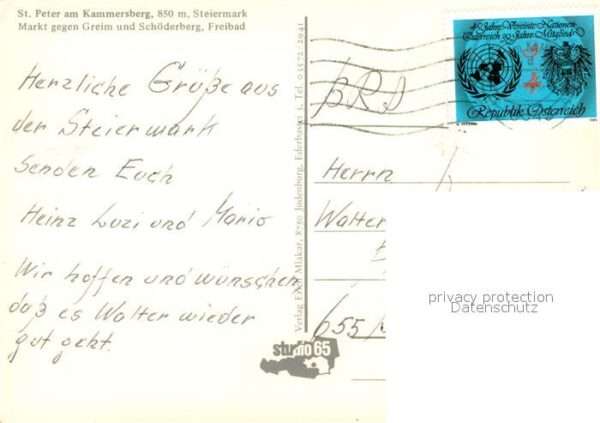 St. Peter am Kammersberg, 850 m, Steiermark
Markt gegen Greim und Schöderberg, Freibad
Herzliche Grüße aus
der Steiermark
Senden Euch
Heinz Luzi und Mario
Wir hoffen und wünschen
daß es Walter wieder
gut geht.
Verlag Mlakar, 8750 Judenburg, Tel. 03572-2941
studio 65
40 Jahre Vereinte Nationen
Österreich 30 Jahre Mitglied
Republik Österreich
BRD
Herrn
Walter
655
privacy protection
Datenschutz